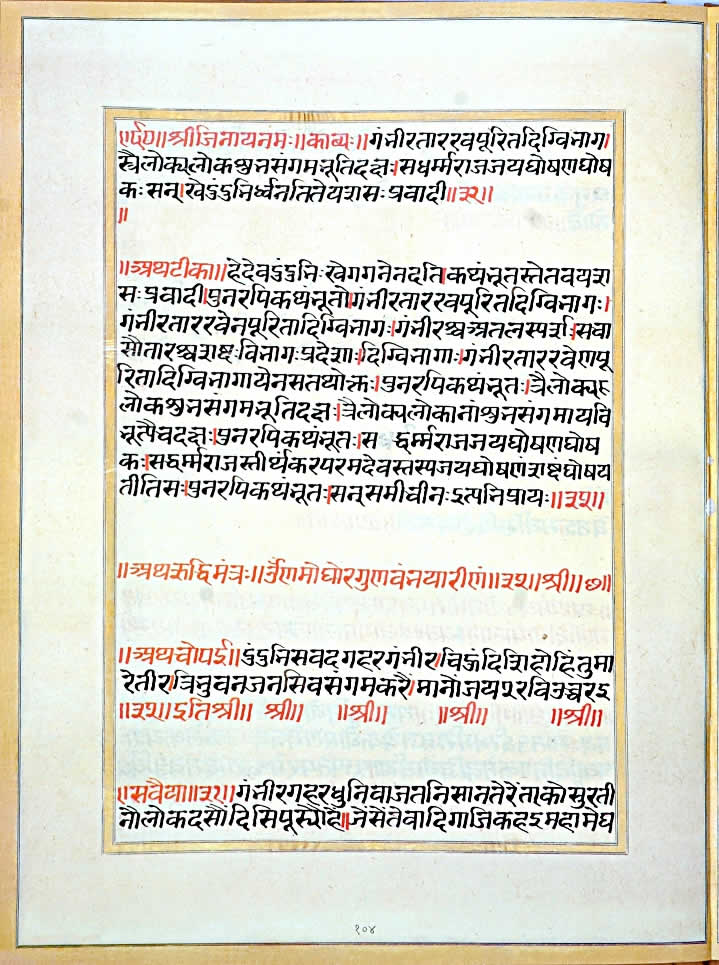 ॥र्द०॥श्रीजिनायनमः॥काव्यः॥गंभीरताररवपूरितदिग्विभाग।
स्त्रैलोक्यलोकशुभसंगमभूतिदक्षः।सधर्म्मराजजयघोषणघोष
कः सन्।खेदुंदुभिर्ध्वनतितेयशसः प्रवादी॥३२॥
॥
॥अथटीका॥हेदेवदुंदुभिः खेगगनेनदति।कथंभूतस्तेतवयश
सः प्रवादी।पुनरपिकथंभूतो।गंभीरताररवपूरितदिग्विभागः।
गंभीरताररवेनपूरितादिग्विभागः।गंभीरश्चअतलस्पर्श।सचा
सौतारश्चशब्दःविभागःप्रदेशा।दिग्विभागाः।गंभीरताररवेणपू
रितादिग्विभागायेनसतथोक्तः।पुनरपिकथंभूतः।त्रैलोक्य
लोकशुभसंगमभूतिदक्षः।त्रैलोक्यलोकानांशुभसंगमायवि
भूत्यैचदक्षः।पुनरपिकथंभूतः।स द्धर्म्मराजजयघोषणघोष
कः।सद्धर्म्मराजस्तीर्थंकरपरमदेवस्तस्यजयघोषणंशब्दघोषय
तीतिसः।पुनरपिकथंभूतः।सन्समीचीनःइत्यभिप्रायः॥३२॥
॥अथऋद्धिमंत्रः॥ॐणमोघोरगुणवंभयारीणं॥३२॥श्री॥छ॥
॥अथचोपई॥दुंदुभिसवदगहरगंभीर।चिऊंदिशिहोहितुमा
रेतीर।त्रिभुवनजनसिवसंगमकरै।मानौंजय२रविउच्चरइ
॥३२॥इतिश्री॥ श्री॥ ॥श्री॥ ॥श्री॥ ॥श्री॥
॥सवैया॥३२॥गंभीरगहरधुनिवाजतनिसानतेरेताकोसुरती
नौलोकदसौंदिसिपूस्यौहै॥जैसेतेवादिगाजिकहइमहामेघ
१०४